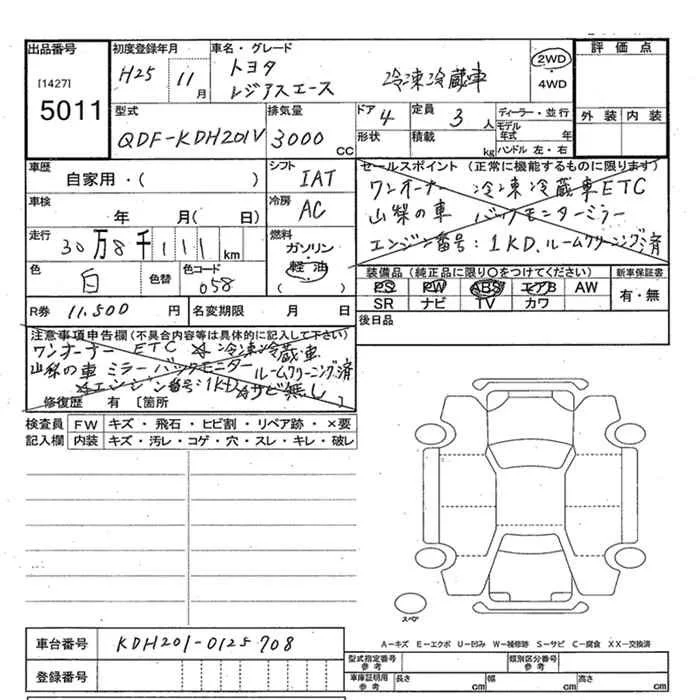 出品番号 初度登録年月 車名・グレード 評価点
[1427] H25 11月 トヨタ 冷凍冷蔵車 2WD・4WD
5011 レジアスエース
型式 排気量 ドア 4 定員 3人 ディーラー・並行 外装 内装
QDF-KDH201V 3000CC 形状 積載 kg モデル年式 年
ハンドル 左・右
車歴 シフト セールスポイント (正常に機能するものに限ります)
自家用・( ) IAT ワンオーナー 冷凍冷蔵車 ETC
車検 冷房 山梨の車 バックモニターミラー
年 月( 日) AC エンジン番号:1KD、ルームクリーニング済
走行 燃料
30万8千111km ガソリン・軽油
色 白 色替 色コード 058 ( )
装備品(純正品に限り○をつけてください) 新車保証書
PS PW ABS エアB AW 有・無
SR ナビ TV カワ
R券 11,500円 名変期限 月 日 後日品
注意事項申告欄(不具合内容等は具体的に記入して下さい)
ワンオーナー ETC 冷凍冷蔵車
山梨の車 ミラーバックモニター ルームクリーニング済
エンジン番号:1KD サビ無し
修復歴 有 〔箇所 〕
検査員記入欄 FW キズ・飛石・ヒビ割・リペア跡・×要
内装 キズ・汚レ・コゲ・穴・スレ・キレ・破レ
スペア
A-キズ E-エクボ U-凹み W-補修跡 S-サビ C-腐食 XX-交換済
車台番号 KDH201-0125708
型式指定番号 参考 類別区分番号 参考
登録番号
車庫証明用 参考 長さ cm 幅 cm 高さ cm